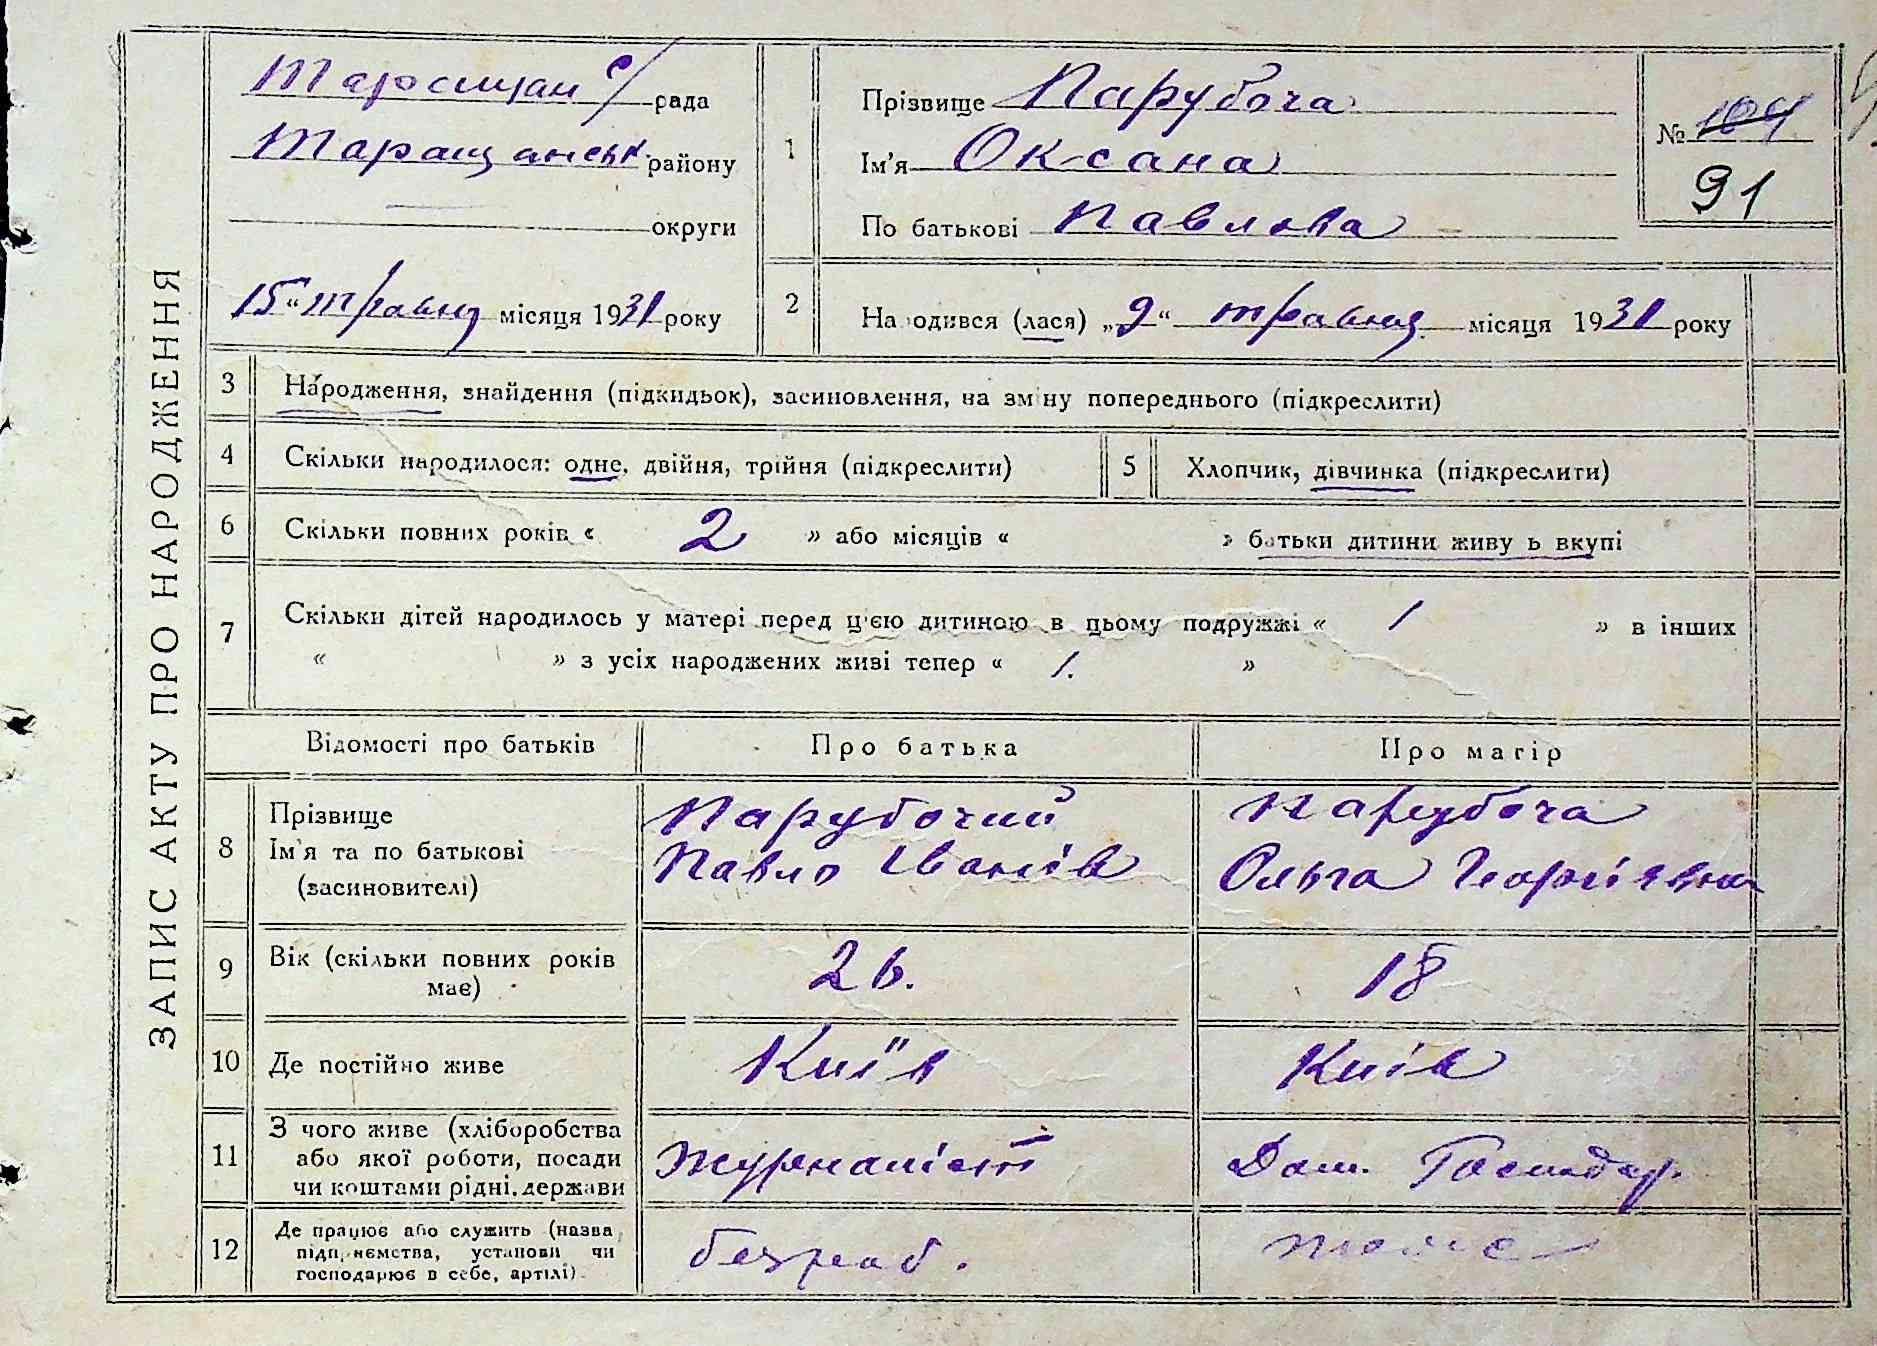 ЗАПИС АКТУ ПРО НАРОДЖЕННЯ
Таращан с/ рада
Таращанськ. району
округи
15 "травня місяця 1931 року
1
Прізвище Парубоча
Ім'я Оксана
По батькові Павловa
№ 104
91
2
Народився (лася) „9" травня місяця 1931 року
3 Народження, знайдення (підкидьок), засиновлення, на зміну попереднього (підкреслити)
4 Скільки народилося: одне, двійня, трійня (підкреслити)
5 Хлопчик, дівчинка (підкреслити)
6 Скільки повних років « 2 » або місяців « » батьки дитини живуть вкупі
7 Скільки дітей народилось у матері перед ц'єю дитиною в цьому подружжі « 1 » в інших
« » з усіх народжених живі тепер « 1. »
Відомості про батьків Про батька Про матір
8 Прізвище
Ім'я та по батькові
(засиновителі)
Парубочий
Павло Іванів
Парубоча
Ольга Георгіявна
9 Вік (скільки повних років
має)
26. 18
10 Де постійно живе Київ Київ
11 З чого живе (хліборобства
або якої роботи, посади
чи коштами рідні, держави
Журналіст Дом. Господар.
12 Де працює або служить (назва
підприємства, установи чи
господарює в себе, артілі)
безраб.